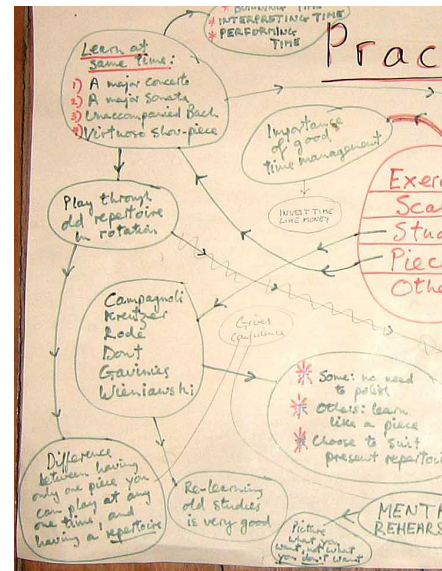 * BURNING TIME
* INTERPRETING TIME
* PERFORMING
TIME
Prac
Learn at
same time:
1) A major concerto
2) A major Sonata
3) Unaccompanied Bach
4) Virtuoso show-piece
Importance
of good
time management
INVEST TIME
LIKE MONEY
Exer
Sca
Stud
Piec
Othe
Play through
old repertoire
in rotation
Campagnoli
Kreutzer
Rode
Dont
Gavinies
Wieniawski
Gives
Confidence
* Some: no need
to polish
* Others: learn
like a piece
* Choose to suit
present repertoi
Difference
between having
only one piece you
can play at any
one time, and
having a 'repertoire'
Re-learning
old studies
is very good
Picture
what you
want, not what
you don't want
MENTA
REHEARS